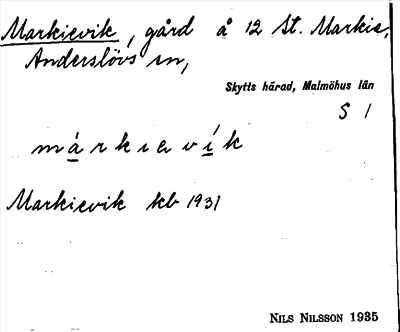 Markievik, gård å 12 St. Markie,
Anderslövs sn,
Skytts härad, Malmöhus län
S 1
márkıevík
Markievik kb 1931
NILS NILSSON 1935